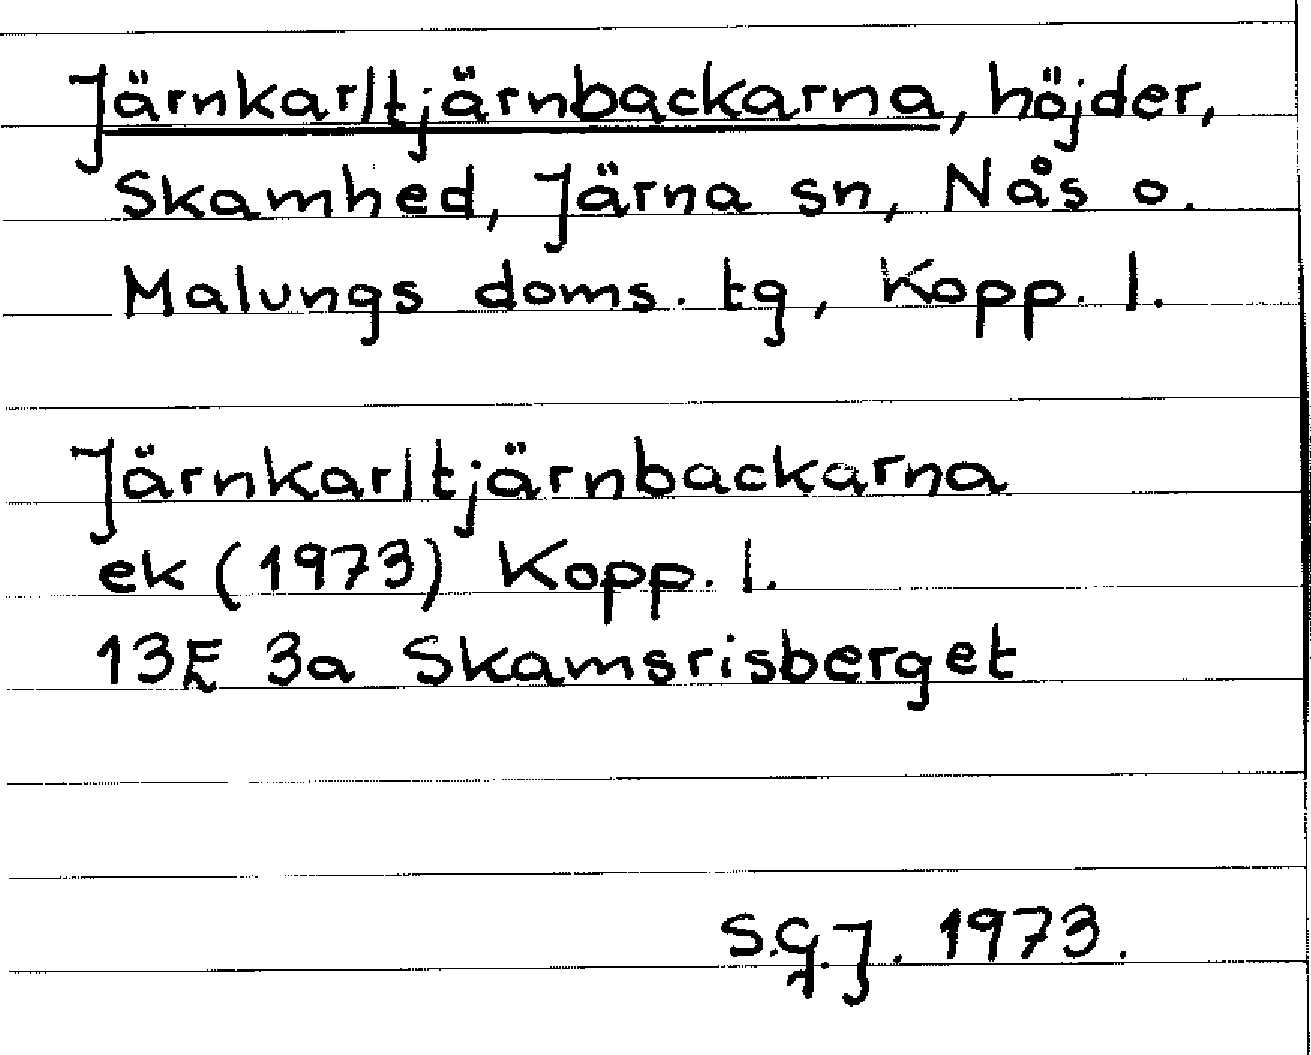 Järnkarltjärnbackarna, höjder,
Skamhed, Järna sn, Nås o.
Malungs doms. tg, Kopp. l.
Järnkarltjärnbackarna
ek (1973) Kopp. l.
13E 3a Skamsrisberget
S.G.J. 1973.